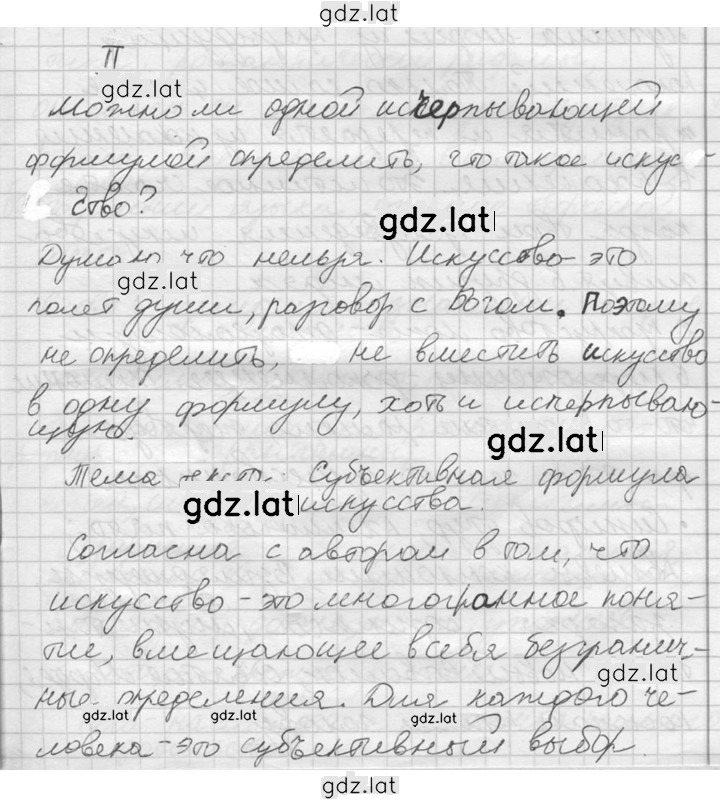 gdz.lat
II
gdz.lat
можно ли одной исчерпывающей
формулой определить, что такое искус-
ство?
gdz.lat
Думаю что нельзя. Искусство-это
gdz.lat
полет души, разговор с Богом. Поэтому
не определить, не вместить искусство
в одну формулу, хоть и исперпываю-
щую.
gdz.lat
Тема текста: Субъективная формула
gdz.lat
искусства.
Согласна с автором в том, что
искусство-это многогранное поня-
тие, вмещающее всебя безгранич-
gdz.lat
ные определения. Для каждого че-
gdz.lat gdz.lat gdz.lat
ловека-это субъективный выбор.
gdz.lat